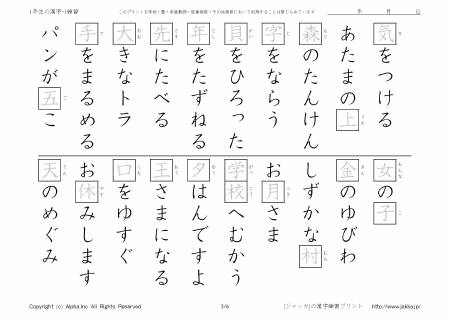 1年生の漢字-1練習
年 月 日
気をつける
あたまの上
森のたんけん
字をならう
貝をひろった
年をたずねる
先にたべる
大きなトラ
手をまるめる
パンが五こ
女の子
金のゆびわ
しずかな村
お月さま
学校へむかう
夕はんですよ
王さまになる
口をゆすぐ
お休みします
天のめぐみ
Copyright (c) Alpha.Inc All Rights Reserved.
3/6
[ジャッカ]の漢字練習プリント http://www.jakka.jp/